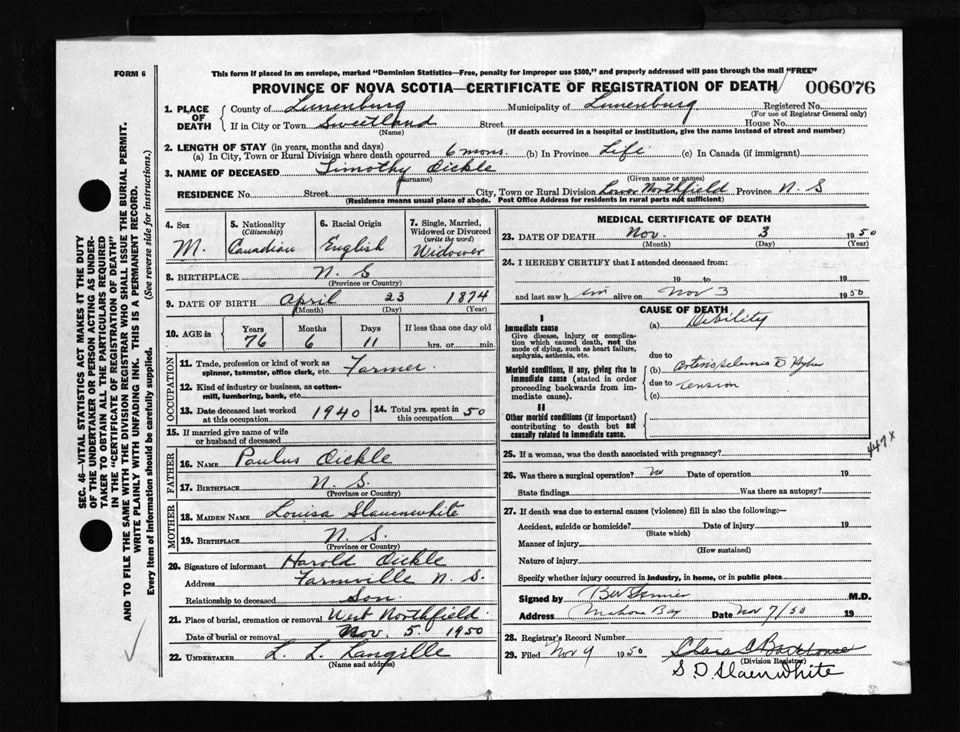 FORM 6
This form if placed in an envelope, marked "Dominion Statistics—Free, penalty for improper use $300," and properly addressed will pass through the mail "FREE"
PROVINCE OF NOVA SCOTIA—CERTIFICATE OF REGISTRATION OF DEATH 006076
1. PLACE OF DEATH County of Lunenburg Municipality of Lunenburg Registered No.
(For use of Registrar General only)
If in City or Town Sweetland Street House No.
(Name) (If death occurred in a hospital or institution, give the name instead of street and number)
2. LENGTH OF STAY (in years, months and days)
(a) In City, Town or Rural Division where death occurred 6 mons. (b) In Province Life (c) In Canada (if immigrant)
3. NAME OF DECEASED Timothy Oickle
(Surname) (Given name or names)
RESIDENCE No. Street City, Town or Rural Division Lower Northfield Province N. S
(Residence means usual place of abode. Post Office Address for residents in rural parts not sufficient)
4. Sex M.
5. Nationality (Citizenship) Canadian
6. Racial Origin English
7. Single, Married, Widowed or Divorced (write the word) Widower
8. BIRTHPLACE N. S
(Province or Country)
9. DATE OF BIRTH April 23 1874
(Month) (Day) (Year)
10. AGE in Years Months Days If less than one day old
76 6 11 hrs. or min.
OCCUPATION
11. Trade, profession or kind of work as spinner, teamster, office clerk, etc. Farmer
12. Kind of industry or business, as cotton-mill, lumbering, bank, etc.
13. Date deceased last worked at this occupation 1940 14. Total yrs. spent in this occupation 50
15. If married give name of wife or husband of deceased
FATHER
16. NAME Paulus Oickle
17. BIRTHPLACE N. S.
(Province or Country)
MOTHER
18. MAIDEN NAME Louisa Slauenwhite
19. BIRTHPLACE N. S.
(Province or Country)
20. Signature of informant Harold Oickle
Address Farmville N. S.
Relationship to deceased Son
21. Place of burial, cremation or removal West Northfield
Date of burial or removal Nov. 5. 1950
22. UNDERTAKER L. L. Langille
(Name and address)
MEDICAL CERTIFICATE OF DEATH
23. DATE OF DEATH Nov. 3 1950
(Month) (Day) (Year)
24. I HEREBY CERTIFY that I attended deceased from:
19 to 19
and last saw him alive on Nov 3 1950
CAUSE OF DEATH
I
Immediate cause
Give disease, injury or complication which caused death, not the mode of dying, such as heart failure, asphyxia, asthenia, etc.
(a) Debility
due to
Morbid conditions, if any, giving rise to immediate cause (stated in order proceeding backwards from immediate cause).
(b)
due to tension
(c)
II
Other morbid conditions (if important) contributing to death but not causally related to immediate cause.
447 x
25. If a woman, was the death associated with pregnancy?
26. Was there a surgical operation? no Date of operation 19
State findings Was there an autopsy?
27. If death was due to external causes (violence) fill in also the following:—
Accident, suicide or homicide? Date of injury 19
(State which)
Manner of injury
(How sustained)
Nature of injury
Specify whether injury occurred in industry, in home, or in public place
Signed by M.D.
Address Mahone Bay Date Nov 7/50 19
28. Registrar's Record Number
29. Filed Nov 9 1950
(Division Registrar)
S. D Slaenwhite
SEC. 46—VITAL STATISTICS ACT MAKES IT THE DUTY
OF THE UNDERTAKER OR PERSON ACTING AS UNDER-
TAKER TO OBTAIN ALL THE PARTICULARS REQUIRED
IN THE "CERTIFICATE OF REGISTRATION OF DEATH"
AND TO FILE THE SAME WITH THE DIVISION REGISTRAR WHO SHALL ISSUE THE BURIAL PERMIT.
WRITE PLAINLY WITH UNFADING INK. THIS IS A PERMANENT RECORD.
Every item of information should be carefully supplied. (See reverse side for instructions.)